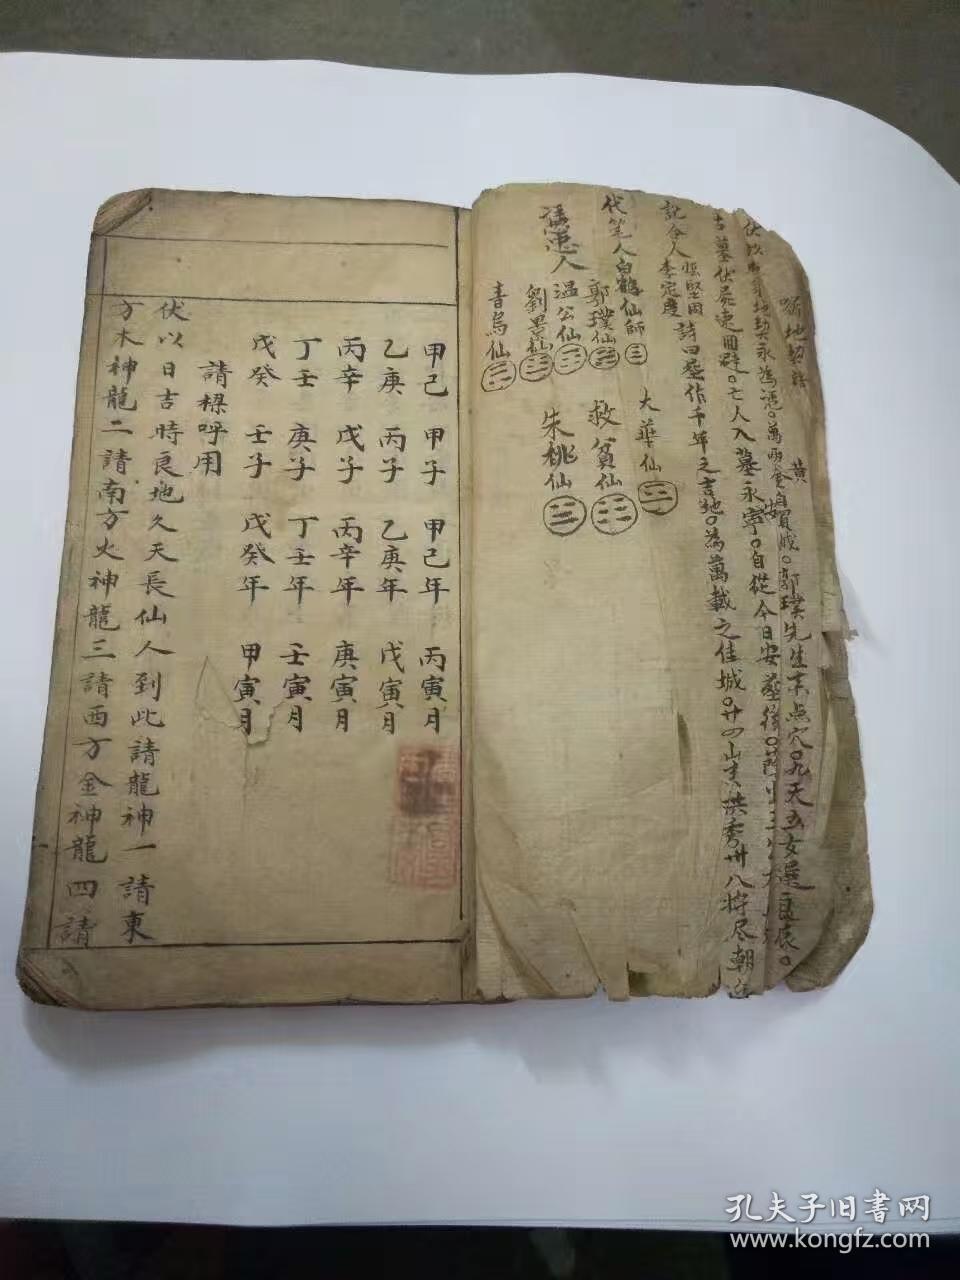 永為憑。萬兩金自買成。郭璞先生來点穴。九天玄女選良辰。
古墓伏屍速迴避。亡人入墓永安寧。自從今日安葬後。
詩曰 作千年之吉地。為萬載之佳城。廿四山 洪秀卅八將尽朝迎
記合人
張堅固
李定度
代笔人白鶴仙師
郭璞仙
大華仙
救貧仙
温公仙
朱桃仙
青烏仙
甲己 甲子 甲己年 丙寅月
乙庚 丙子 乙庚年 戊寅月
丙辛 戊子 丙辛年 庚寅月
丁壬 庚子 丁壬年 壬寅月
戊癸 壬子 戊癸年 甲寅月
請樑呼用
伏以日吉時良地久天長仙人到此請龍神一請東
方木神龍二請南方火神龍三請西方金神龍四請
孔夫子旧書网
www.kongfz.com